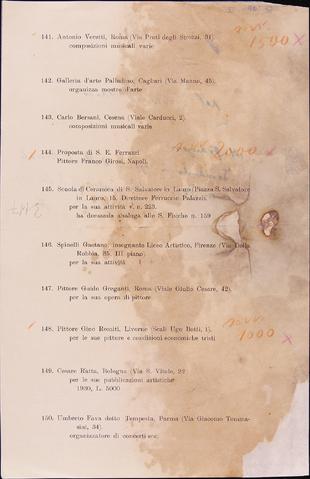 1500 X
141. Antonio Veretti, Roma (Via Prati degli Strozzi, 31)
composizioni musicali varie
142. Galleria d'arte Palladino, Cagliari (Via Manno, 45),
organizza mostre d'arte
143. Carlo Bersani, Cesena (Viale Carducci, 2)
composizioni musicali varie
144. Proposta di S. E. Ferrazzi
Pittore Franco Girosi, Napoli.
145. Scuola di Ceramica di S. Salvatore in Lauro (Piazza S. Salvatore
in Lauro, 15. Direttore Ferruccio Palazzi.
per la sua attività v. n. 223.
ha domanda analoga alle S. Fische n. 159
146. Spinelli Gaetano, insegnante Liceo Artistico, Firenze (Via Della
Robbia, 85. III piano)
per la sua attività
147. Pittore Guido Greganti, Roma (Viale Giulio Cesare, 42).
per la sua opera di pittore
1000 X
148. Pittore Gino Romiti, Livorno (Scali Ugo Botti, 1).
per le sue pitture e condizioni economiche tristi
149. Cesare Ratta, Bologna (Via S. Vitale, 22
per le sue pubblicazioni artistiche
1930, L. 5000
150. Umberto Fava detto Tempesta, Parma (Via Giacomo Tomma-
sini, 34).
organizzatore di concerti ecc.